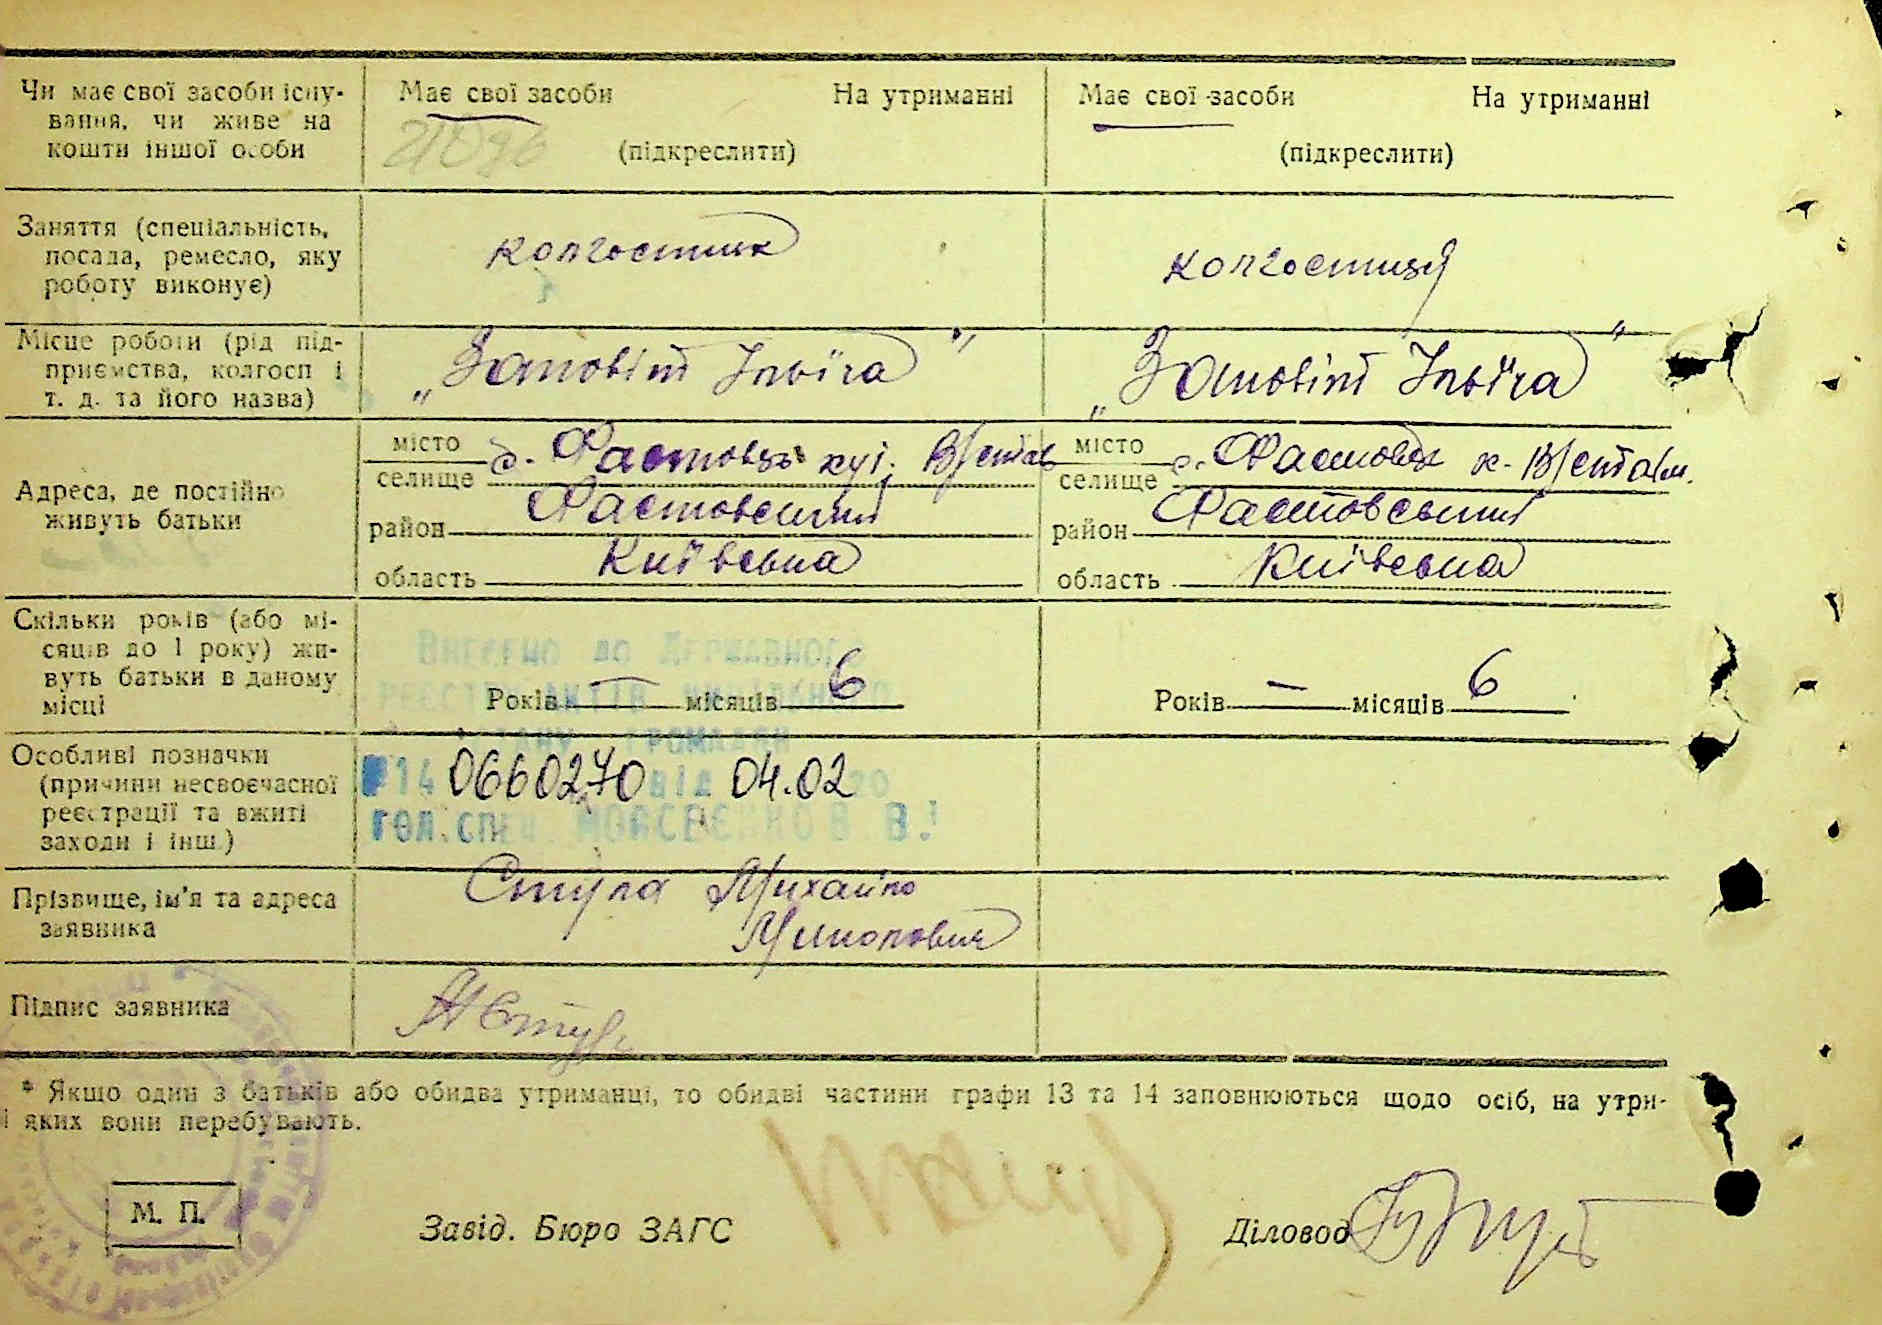 Чи має свої засоби існу-
вання, чи живе на
кошти іншої особи
Має свої засоби На утриманні
(підкреслити)
Має свої засоби На утриманні
(підкреслити)
Заняття (спеціальність,
посада, ремесло, яку
роботу виконує)
колгоспник
колгоспниця
Місце роботи (рід під-
приємства, колгосп і
т. д. та його назва)
„Заповіт Ілліча"
„Заповіт Ілліча"
Адреса, де постійно
живуть батьки
місто
селище
с. Фастовець
район Фастовський
область Київська
місто
селище
с. Фастовець
район Фастовський
область Київська
Скільки років (або мі-
сяців до 1 року) жи-
вуть батьки в даному
місці
Років — місяців 6
Років — місяців 6
Внесено до Державного
реєстру актів цивільного
стану громадян
0660270 від 04.02 20
гол.спец. Моісеєнко В.В.
Особливі позначки
(причини несвоєчасної
реєстрації та вжиті
заходи і інш.)
Прізвище, ім'я та адреса
заявника
Ступа Михайло
Підпис заявника
* Якщо один з батьків або обидва утриманці, то обидві частини графи 13 та 14 заповнюються щодо осіб, на утри-
і яких вони перебувають.
М. П.
Завід. Бюро ЗАГС
Діловод